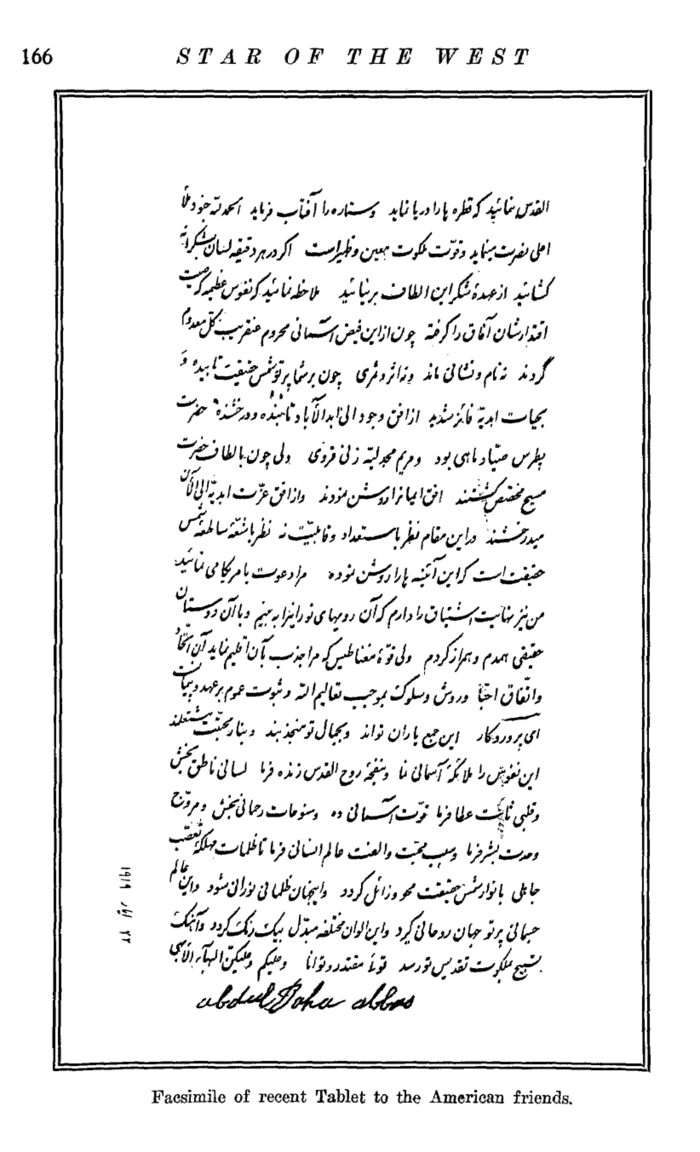 166
STAR OF THE WEST
القدس نمائید که قطره‌ها را دریا نماید وستاره را آفتاب فرماید الحمدلله جنود ملأ
اعلی نصرت مینماید وقوّت ملکوت معین وظهیر است اگر در هر دقیقه لسان بشکرانه
گشائید از عهدهٔ شکر این الطاف برنیائید ملاحظه نمائید که نفوس عظیمه که صیت
اقتدارشان آفاق را گرفته چون از این فیض آسمانی محروم عنقریب کل معدوم
گردند نه نام ونشانی ماند ونه اثر وثمری چون بر شما پرتو شمس حقیقت تابیده و
بحیات ابدیّه فائز شدید از افق وجود الی ابد الآباد تابنده ودرخشنده حضرت
پطرس صیّاد ماهی بود ومریم مجدلیّه زنی قروی ولی چون بالطاف حضرت
مسیح مختص گشتند افق ایمانرا روشن نمودند واز افق عزّت ابدیّه الی الآن
میدرخشند در این مقام نظر باستعداد وقابلیّت نه نظر باشعّهٔ ساطعهٔ شمس
حقیقت است که این آئینه‌ها را روشن نموده مرا دعوت بامریکا می نمائید
من نیز نهایت اشتیاق را دارم که آن رویهای نورانیرا به بینم وبا آن دوستان
حقیقی همدم وهمراز گردم ولی قوّهٔ مغناطیس که مرا جذب بآن اقلیم نماید آن اتّحاد
واتّفاق احبّا وروش وسلوک بموجب تعالیم الله وثبوت عموم بر عهد وپیمانست
ای پروردگار این جمع یاران تواند وبجمال تو منجذبند وبنار محبّتت مشتعلند
این نفوس را ملائکهٔ آسمانی نما وبنفحهٔ روح القدس زنده فرما لسانی ناطق بخش
وقلبی ثابت عطا فرما قوّت آسمانی ده وسنوحات رحمانی بخش ومروّج
وحدت بشر فرما وسبب محبّت والفت عالم انسانی فرما تا ظلمات مهلکهٔ تعصّب
جاهلی بانوار شمس حقیقت محو وزائل گردد واینجهان ظلمانی نورانی شود واین عالم
جسمانی پرتو جهان روحانی گیرد واین الوان مختلفه مبدّل بیک رنگ گردد وآهنگ
تسبیح بملکوت تقدیس تو رسد توئی مقتدر وتوانا وعلیکم وعلیکنّ البهآء الأبهی
abdul Baha abbas
٢٢ ١٩١٩
Facsimile of recent Tablet to the American friends.